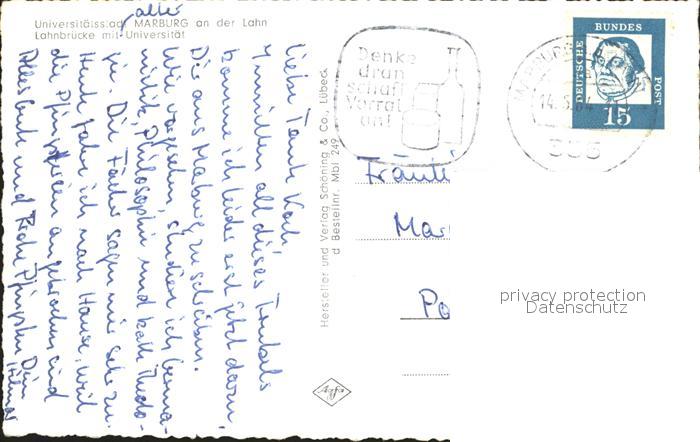 alle
Universitätsstadt MARBURG an der Lahn
Lahnbrücke mit Universität
Denke
dran
schaff
Vorrat
an!
DEUTSCHE BUNDES POST
15
MARBURG
14.5.64
355
Liebe Tante
Inmitten all dieses Trubels
komme ich leider erst jetzt dazu,
Dir aus Marburg zu schreiben.
Wie vorgesehen, studiere ich Germa-
nistik, Philosophie und kath. Theolo-
gie. Die Fächer sagen mir sehr zu.
Heute fahre ich nach Hause, weil
die Pfingstferien angebrochen sind
Alles Gute und frohe Pfingsten Dein
Hersteller und Verlag Schöning & Co., Lübeck
Bestellnr. Mbl 249
Agfa
Fräulei
Mar
Po
privacy protection
Datenschutz